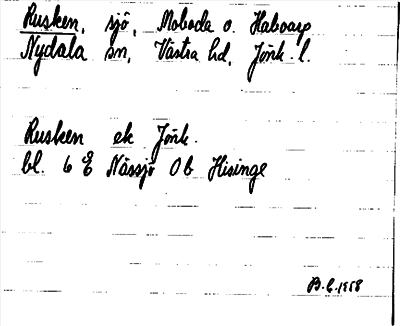 Rusken, sjö, Moboda o. Haboarp
Nydala sn, Västra hd, Jönk. l.
Rusken ek Jönk.
bl. 6 E Nässjö Ob Hisinge
B.E. 1958